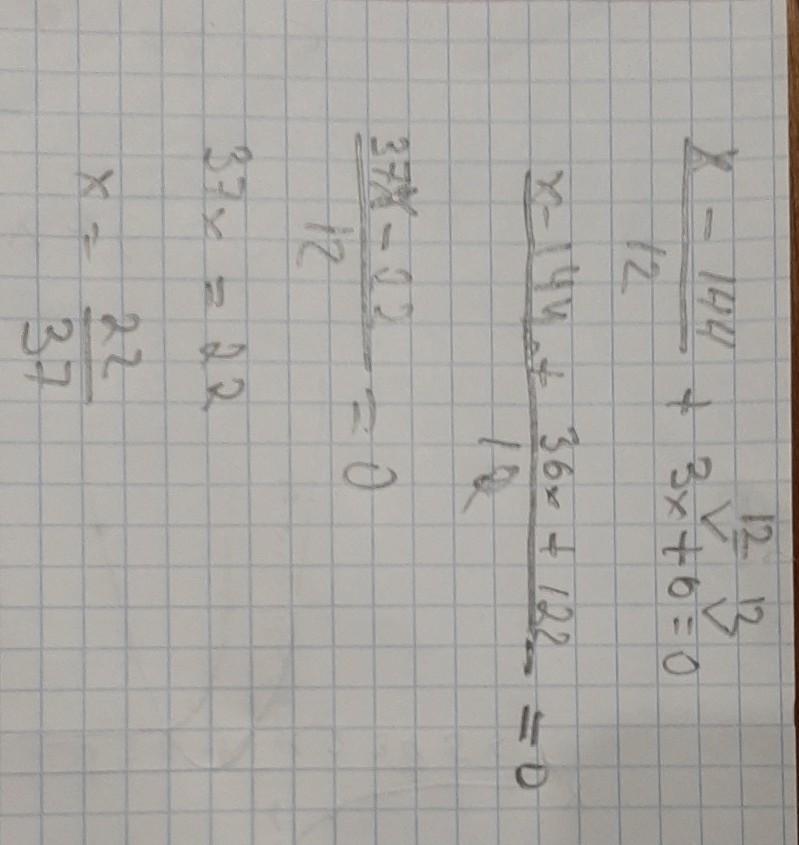 x - 144 / 12 + 3x + 6 = 0
12 12
x - 144 + 36x + 122 / 12 = 0
37x - 22 / 12 = 0
37x = 22
x = 22 / 37